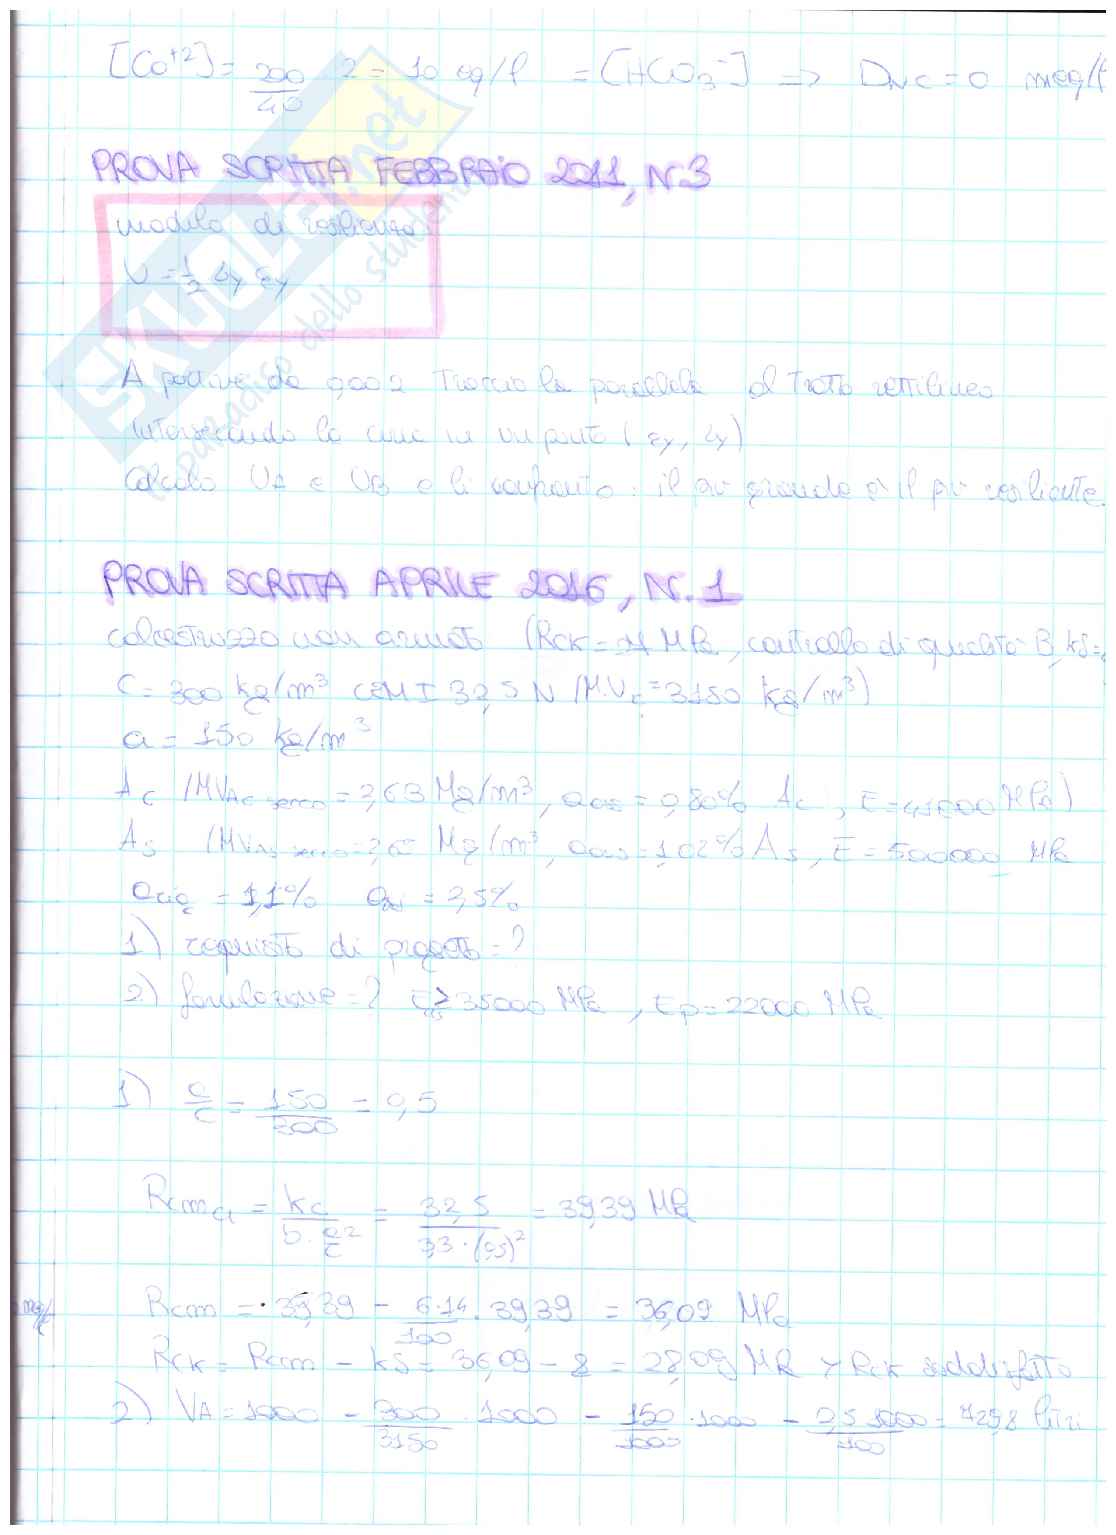 [Ca⁺²] = 200/40 · 2 = 10 eq/l = [HCO₃⁻] ⇒ Dₙc = 0 meq/l
PROVA SCRITTA FEBBRAIO 2011, N.3
modulo di resilienza
U = 1/2 σy εy
A partire da 0,002 traccio la parallela al tratto rettilineo
intersecando la curva in un punto (εy, σy)
Calcolo UA e UB e li confronto: il più grande è il più resiliente.
PROVA SCRITTA APRILE 2016, N.1
calcestruzzo non armato (Rck = MPa, controllo di qualità B, kS=
C = 300 kg/m³ CEM I 32,5 N (M.Vc = 3150 kg/m³)
a = 150 kg/m³
AC (MVAC secco = 2,63 Mg/m³, aass = 0,80% Ac, E = 41000 MPa)
AS (MVAS secco = Mg/m³, aass = 1,02% AS, E = 500000 MPa
= 1,1% = 2,5%
1) requisiti di progetto = ?
2) formulazione = ? E ≥ 35000 MPa, Ep = 22000 MPa
1) a/c = 150/300 = 0,5
Rcm = kc / b · a/c² = 32,5 / 3,3 · (0,5)² = 39,39 MPa
Rcm = 39,39 - 6·1,4/100 · 39,39 = 36,09 MPa
meq/l
Rck = Rcm - kS = 36,09 - 8 = 28,09 MPa > Rck soddisfatto
2) VA = 1000 - 300/3150 · 1000 - 150/1000 · 1000 - 2,5·1000/100 = 729,8 litri
SKUOLA.net
Il paradiso dello studente